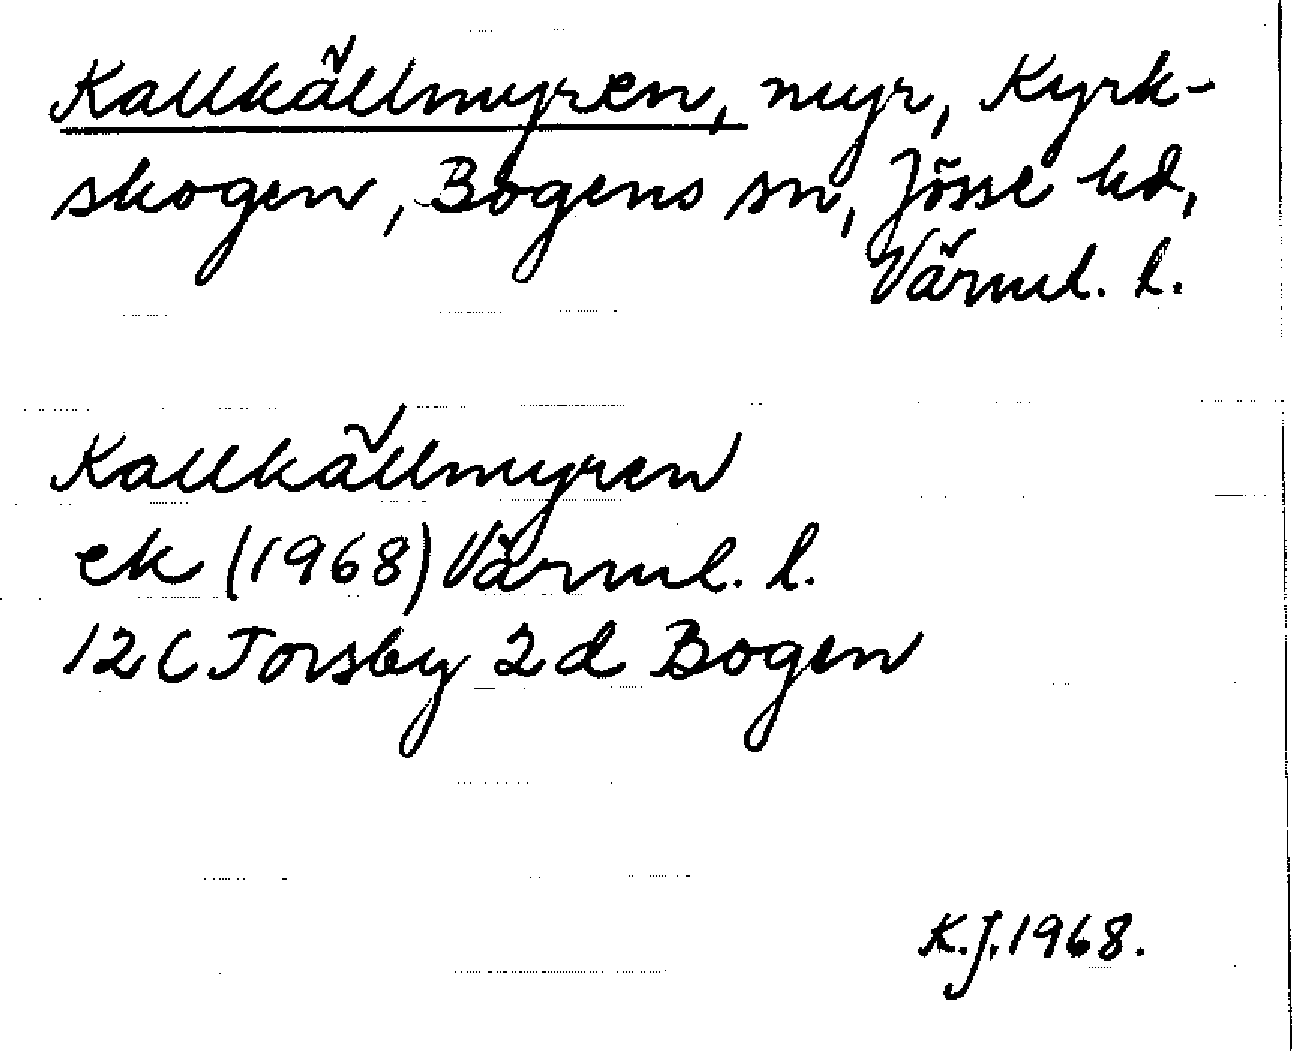 Kallkällmyren, myr, Kyrk-
skogen, Bogens sn, Jösse hd,
Värml. l.
Kallkällmyren
ek (1968) Värml. l.
12 C Torsby 2d Bogen
K.J. 1968.